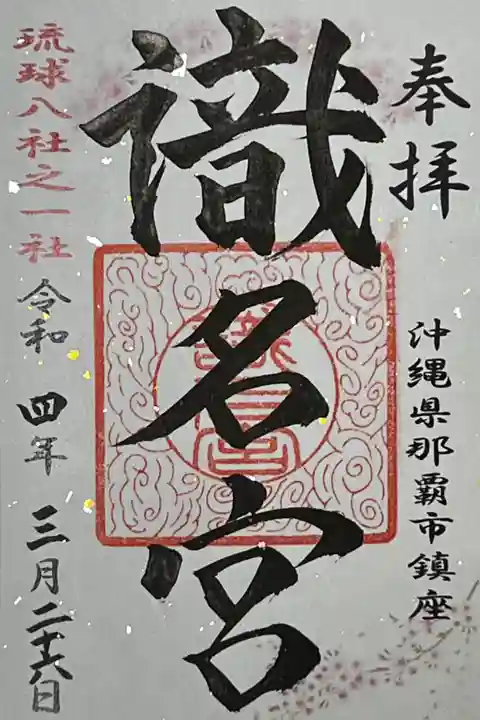 奉拝
沖縄県那覇市鎮座
識名宮
琉球八社之一社
令和四年三月二十六日